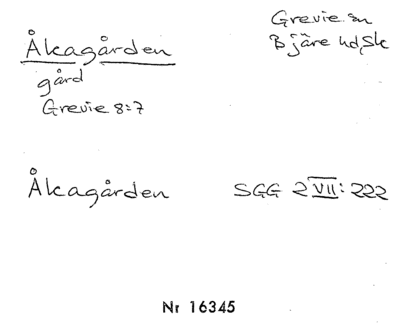 Åkagården
Grevie sn
Bjäre hd, Sk
gård
Grevie 8:7
Åkagården
SGG 2 VII: 222
Nr 16345